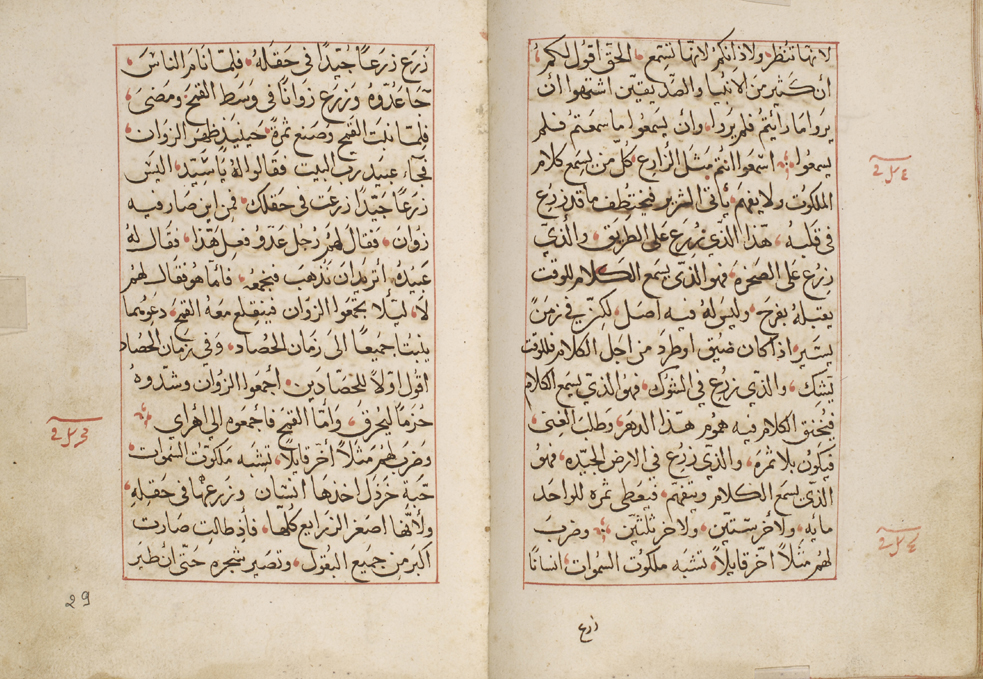 لانها تنظر ولاذانكم لانها تسمع الحق اقول لكم
ان كثير من الانبيا والصديقين اشتهوا ان
يروا ما رايتم فلم يروا وان يسمعوا ما سمعتم فلم
يسمعوا اسمعوا انتم مثل الزارع كل من يسمع كلام
الملكوت ولا يفهم ياتى الشرير فيختطف ما قد زرع
في قلبه هذا الذي زرع على الطريق والذي
زرع على الصخره فهو الذي يسمع الكلام للوقت
يقبله بفرح وليس له فيه اصل لكن في زمن
يسير اذا كان ضيق او طرد من اجل الكلام فللوقت
تشك والذي زرع في الشوك فهو الذي يسمع الكلام
فيخنق الكلام فيه هموم هذا الدهر وطلب الغنى
فيكون بلا ثمره والذي زرع في الارض الجيده فهو
الذي يسمع الكلام ويتفهم فيعطي ثمره للواحد
مايه ولاخر ستين ولاخر ثلثين وضرب
لهم مثلاً آخر قايلاً تشبه ملكوت السموات انسانًا
زرع
زرع زرعاً جيّدًا في حقله فلمّا نام الناس
جا عدوّه وزرع زوانًا في وسط القمح ومضى
فلمّا نبت القمح وصنع ثمرة حينيذ ظهر الزوان
فجآ عبيد رب البيت فقالوا له يا سيّد اليس
زرعًا جيّدًا زرعت في حقلك فمن اين صار فيه
زوان فقال لهم رجل عدو فعل هذا فقال له
عبيده اتريد ان نذهب فنجمعه فامّا هو فقال لهم
لا ليلّا تجمعوا الزوان فينقلع معه القمح دعوهما
ينبتا جميعاً الى زمان الحصاد وفي زمان الحصاد
اقول اولاً للحصّادين اجمعوا الزوان وشدّوه
حزمًا ليحرق وامّا القمح فاجمعوه الى اهراي
وضرب لهم مثلاً اخر قايلاً تشبه ملكوت السموات
حبة خردل اخذها انسان وزرعها في حقله
ولانها اصغر الزرايع كلها فاذ طالت صارت
اكبر من جميع البقول وتصير شجره حتى ان طير
29